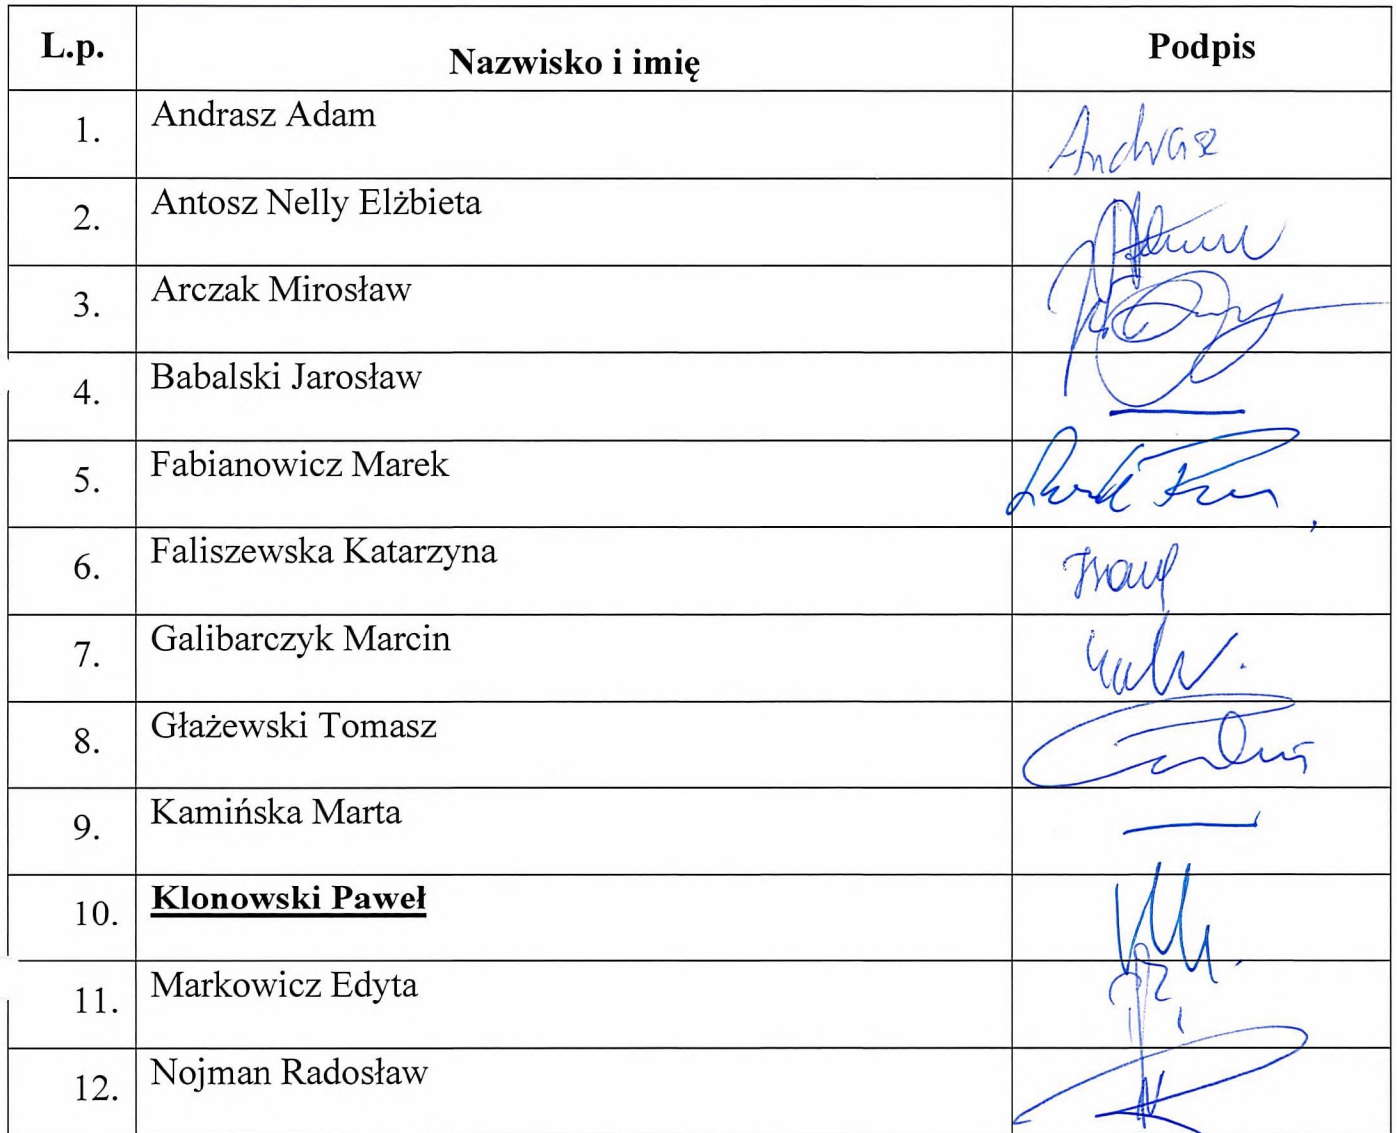 L.p. Nazwisko i imię Podpis
1. Andrasz Adam Andrasz
2. Antosz Nelly Elżbieta
3. Arczak Mirosław
4. Babalski Jarosław
5. Fabianowicz Marek
6. Faliszewska Katarzyna
7. Galibarczyk Marcin
8. Głażewski Tomasz
9. Kamińska Marta
10. Klonowski Paweł
11. Markowicz Edyta
12. Nojman Radosław